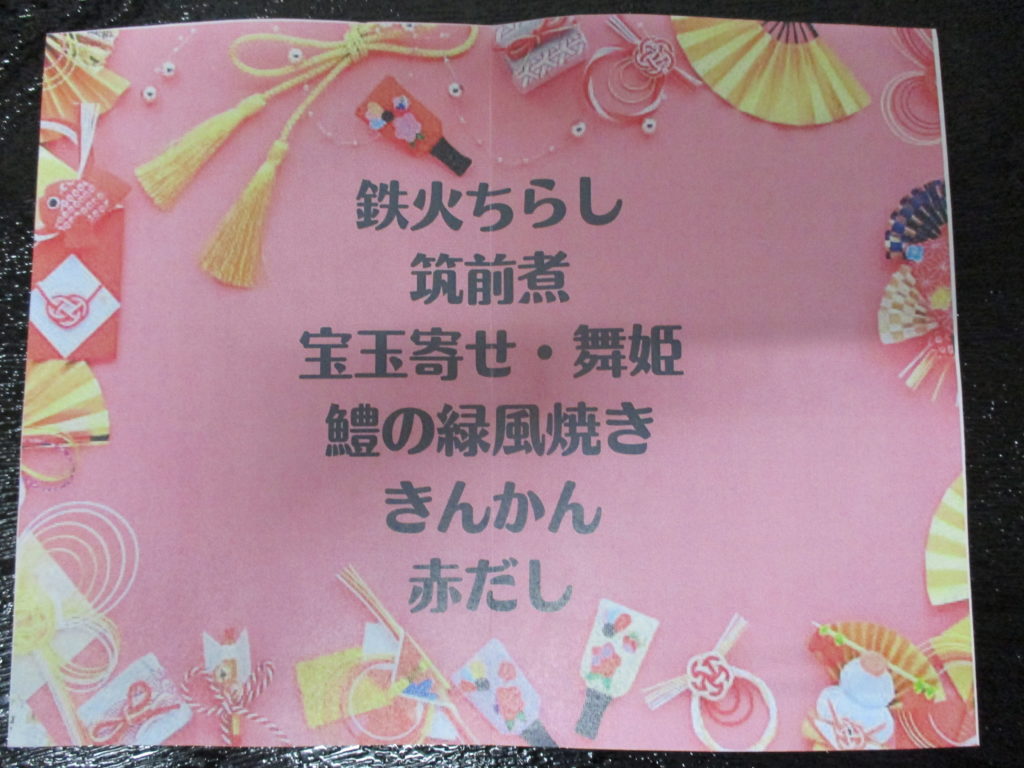 鉄火ちらし
筑前煮
宝玉寄せ・舞姫
鱧の緑風焼き
きんかん
赤だし